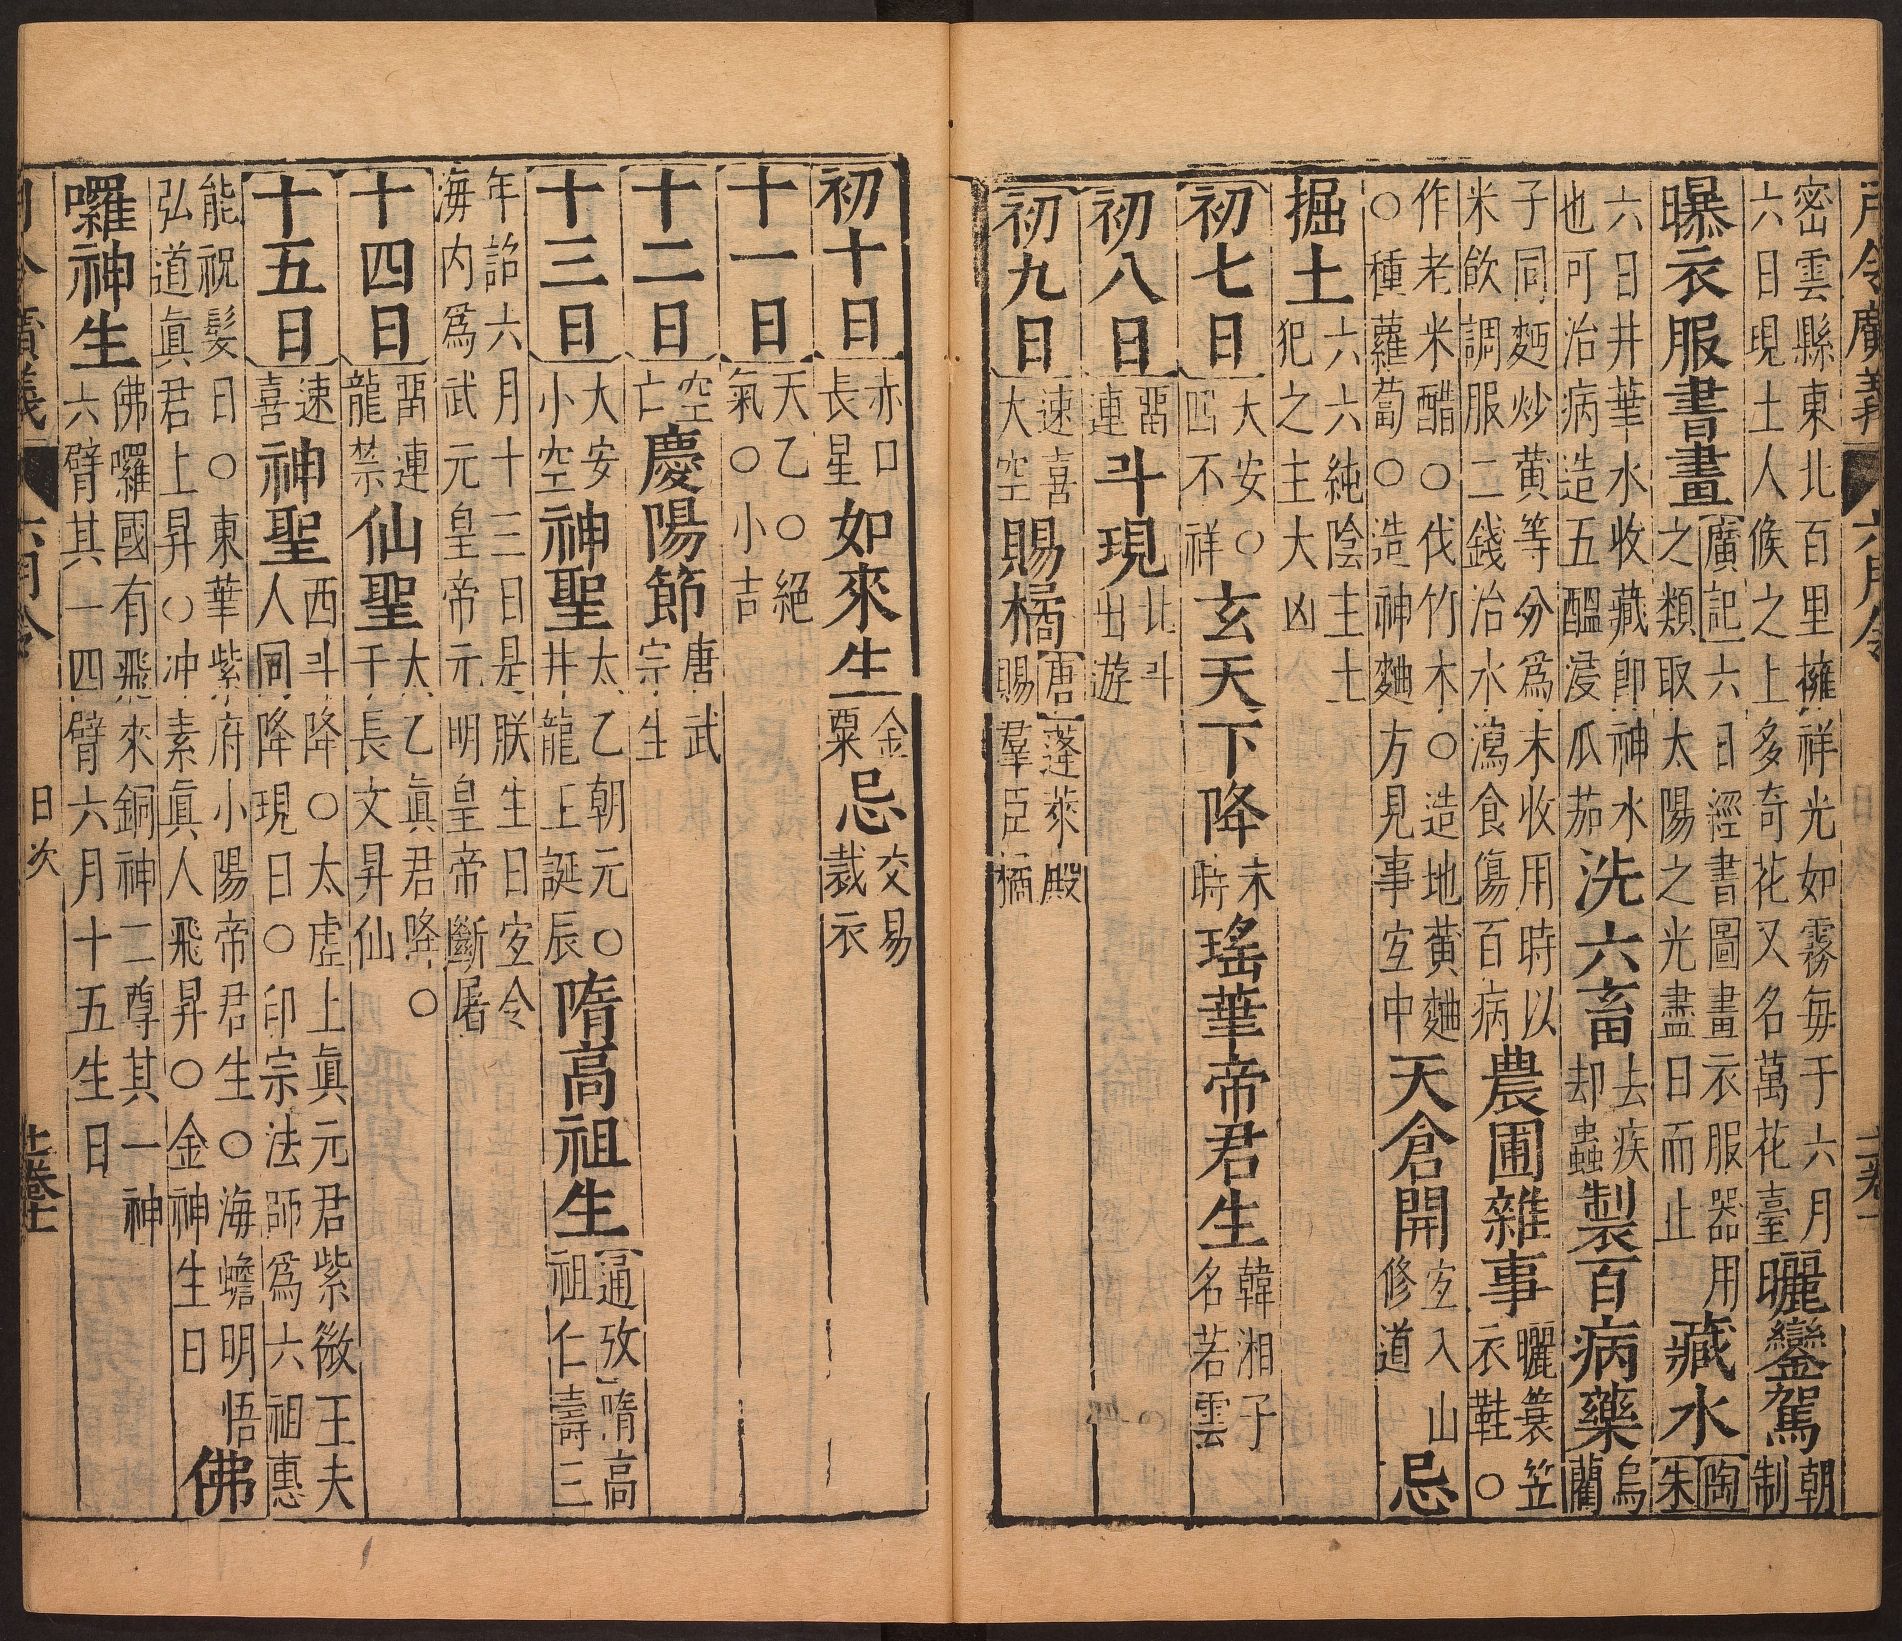 月令廣義 六月令
密雲縣東北百里擁祥光如霧每于六月
六日現土人候之上多奇花又名萬花臺
曬鑾駕
朝
制
曝衣服書畫
廣記六日經書圖畫衣服器用
之類取太陽之光盡日而止
藏水
陶
朱
六日井華水收藏即神水
也可治病造五醞浸瓜茄
洗六畜
去疾
却蟲
製百病藥
烏
藺
子同麪炒黄等分爲末收用時以
米飲調服二錢治水瀉食傷百病
農圃雜事
曬簑笠
衣鞋○
作老米醋○伐竹木○造地黄麯
○種蘿蔔○造神麯方見事宜中
天倉開
宜入山
修道
忌
掘土
六六純陰主土
犯之主大凶
初七日
大安○
四不祥
玄天下降
未
時
瑤華帝君生
韓湘子
名若雲
初八日
畱
連
斗現
北斗
出遊
初九日
速喜
大空
賜橘
唐蓬萊殿
賜羣臣橘
初十日
赤口
長星
如來生
金
粟
忌
交易
裁衣
十一日
天乙○絕
氣○小吉
十二日
空
亡
慶陽節
唐武
宗生
十三日
大安
小空
神聖
太乙朝元○
井龍王誕辰
隋高祖生
通攷隋高
祖仁壽三
年詔六月十三日是朕生日宜令
海内爲武元皇帝元明皇帝斷屠
十四日
畱連
龍禁
仙聖
太乙眞君降○
于長文昇仙
十五日
速
喜
神聖
西斗降○太虛上眞元君紫微王夫
人同降現日○印宗法師爲六祖惠
能祝髮日○東華紫府小陽帝君生○海蟾明悟
弘道眞君上昇○冲素眞人飛昇○金神生日
佛
囉神生
佛囉國有飛來銅神二尊其一神
六臂其一四臂六月十五生日
月令廣義 六月令 日次